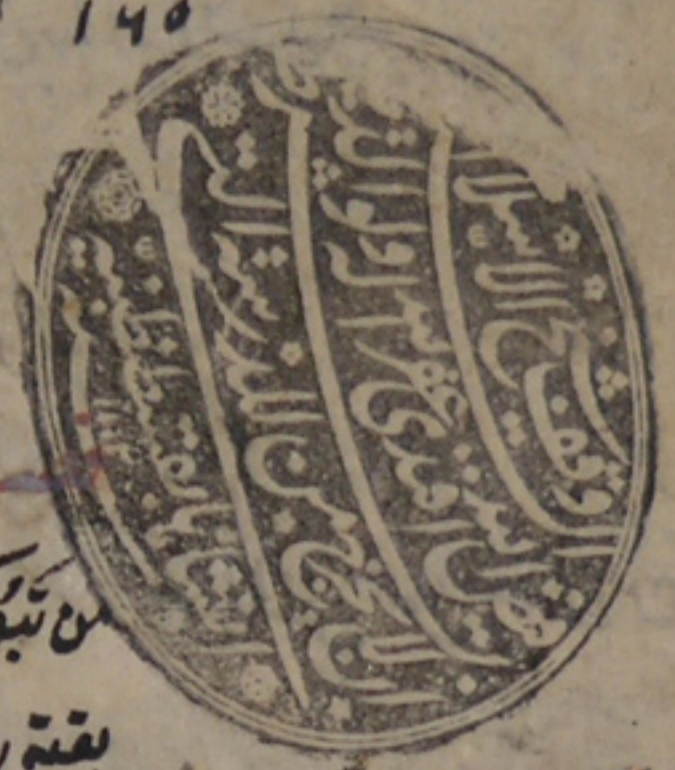 ١٦٥
وقف شيخ الاسلام
السيد فيض الله افندى غفر الله له ولوالديه
بشرط ان لا يخرج من المدرسة التى
انشاها بقسطنطنية
سنة